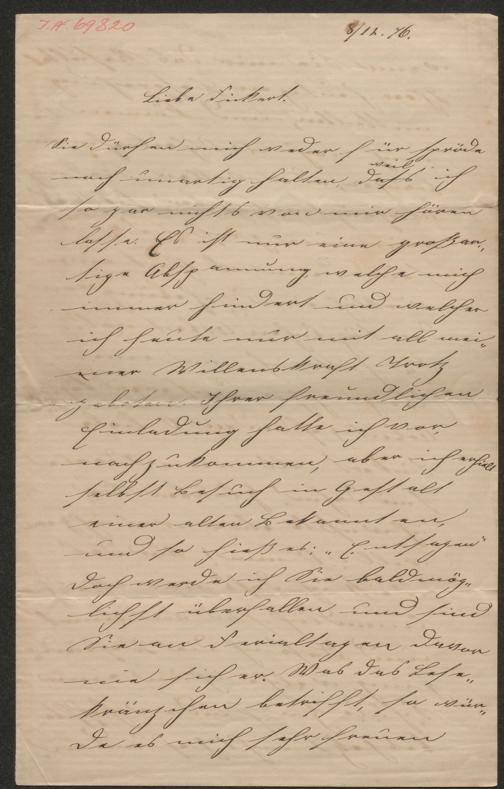 I.N. 69820
8/12. 76.
Liebe Fickert.
Sie dürfen mich weder für spröde
noch unartig halten, weil daſs ich
so gar nichts von mir hören
lasse. Es ist nur eine großar„
tige Abspannung, welche mich
immer hindert und welcher
ich heute nur mit all mei„
ner Willenskraft Trotz
geboten. Ihrer freundlichen
Einladung hatte ich vor,
nachzukommen, aber ich erhielt
selbst Besuch in Gestalt
einer alten Bekannten,
und so hieß es: „Entsagen"
Doch werde ich Sie baldmög„
lichst überfallen und sind
Sie an Ferialtagen davor
nie sicher. Was das Lese„
kränzchen betrifft, so wür„
de es mich sehr freuen